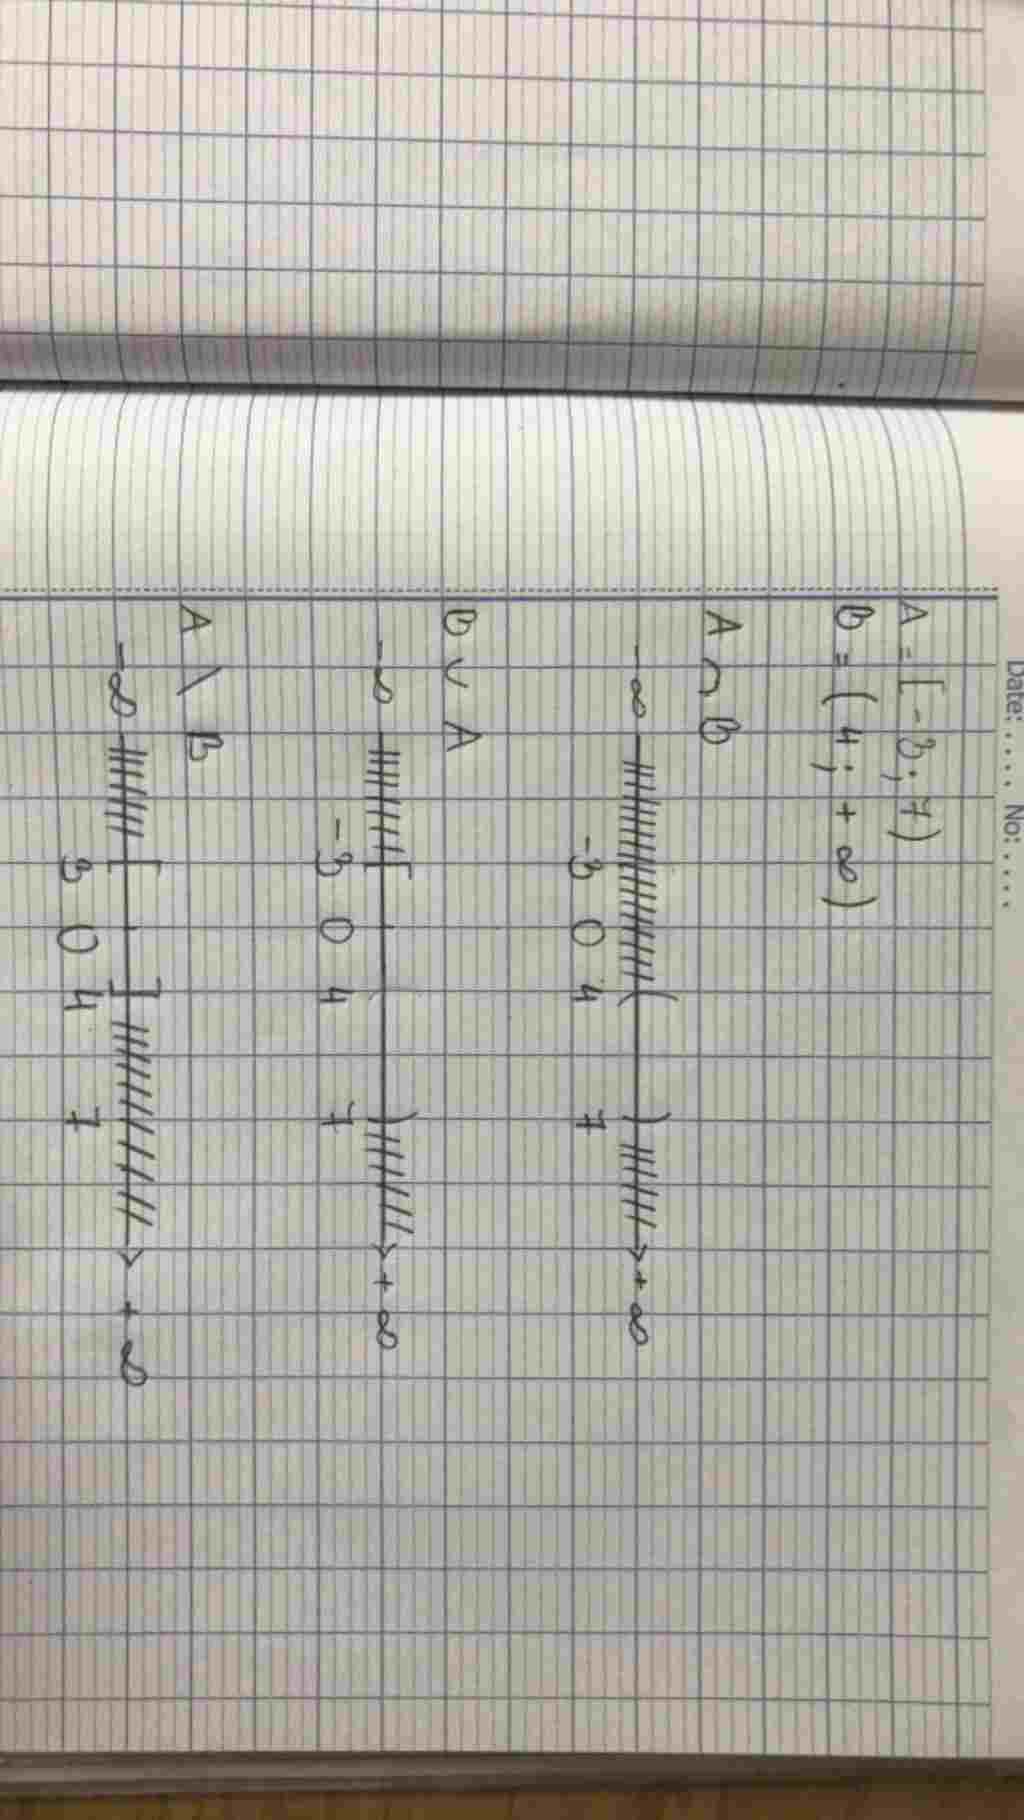 Date:..... No:.....
A = [-3; 7)
B = (4; +∞)
A ∩ B
-∞ //////////////////( ) //////> +∞
-3 0 4 7
B ∪ A
-∞ //////[ ) //////> +∞
-3 0 4 7
A \ B
-∞ ///////[ ] ///////////> +∞
3 0 4 7